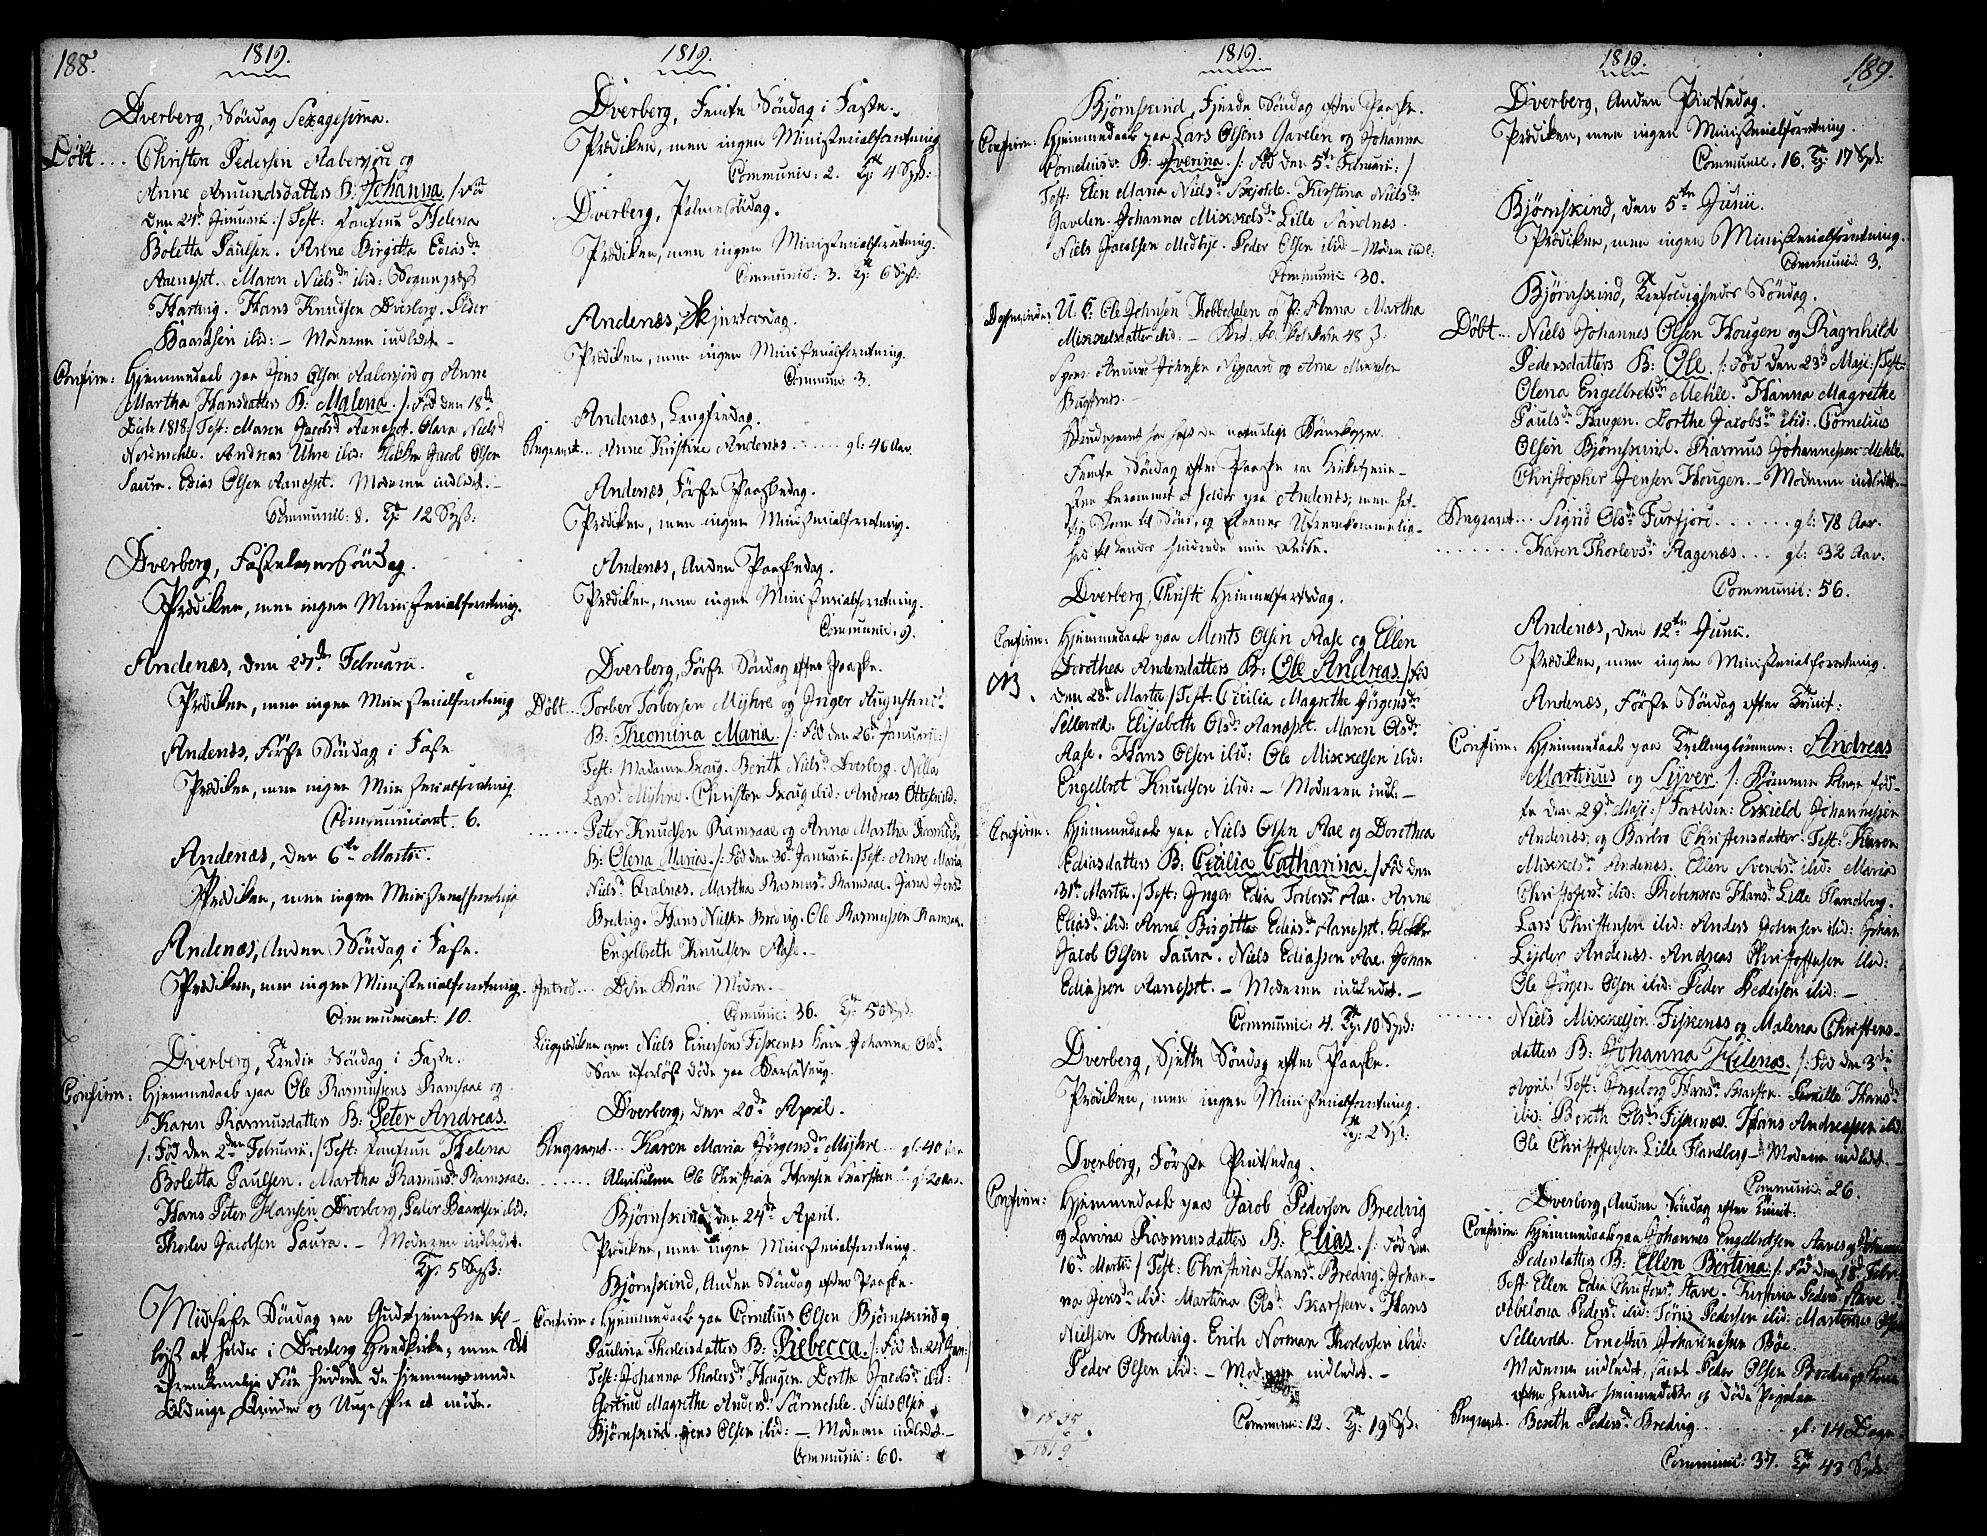 188.
1819.
Dverberg, Söndag Sexagesima.
Döbt... Christen Pedersen Aabersjord og
Anne Amundsdatters B: Johanna /: Föd
den 24de Januarii :/ Test: Jomfrue Helena
Boletta Paulsen. Anne Birgitta Ediasdr
Aanesset. Maren Nielsdr ibid: Sognepræst
Hartvig. Hans Knudsen Dverberg. Peder
Baardsen ibid: – Moderen indledet –
Confirm: Hjemmedaab paa Jens Olsen Aabersjord og Anne
Martha Hansdatters B: Malena /: Föd den 18de
1818 :/ Test: Maren Jacobsdr Aanesset. Olava Nielsdr
Nordmehle. Andreas Uhre ibid: Klokker Jacob Olsen
Saura. Edias Olsen Aanesset. Moderen indledet. –
Communic: 8. Tde 12 Spß:
Dverberg, Fastelavns Söndag.
Prædiken, men ingen Ministerialforretning.
Andenæs, den 27de Februarii.
Prædiken, men ingen Ministerialforretning
Andenæs, Förste Söndag i Faste
Prædiken, men ingen Ministerialforretning
Communicant. 6.
Andenæs, den 6te Martii.
Prædiken, men ingen Ministerialforretning
Andenæs, Anden Söndag i Faste.
Prædiken, men ingen Ministerialforretning.
Communicant: 10.
Dverberg, Tredie Söndag i Faste.
Confirm: Hjemmedaab paa Ole Rasmusens Ramsaae og
Karen Rasmusdatters B: Peter Andreas.
/: Föd den 2den Februarii :/ Test: Jomfrue Helena
Boletta Paulsen. Martha Rasmusdr Ramsaae.
Hans Peter Hansen Dverberg, Peder Baardsen ibid:
Thorlev Jacobsen Saura. – Moderen indledet.
Tde 5 Spß:
Midfaste Söndag var Gudstjenesten til-
lyst at holdes i Dverberg Hovedkirke; men det
ufremkommelige Före hindrede de hjemmeværende
Oldinge Qvinder og Unge fra at möde.
1819.
Dverberg, Femte Söndag i Faste.
Prædiken, men ingen Ministerialforretning
Communic: 2. Tde 4 Spß:
Dverberg, Palmesöndag.
Prædiken, men ingen Ministerialforretning.
Communic: 3. Tde 6 Spß:
Andenæs, Skjertorsdag.
Prædiken, men ingen Ministerialforretning.
Communic: 3.
Andenæs, Langfredag.
Begravet... Anne Kirstine Andenæs...... gl: 46 Aar.
Andenæs, Förste Paaskedag.
Prædiken, men ingen Ministerialforretning.
Andenæs, Anden Paaskedag.
Prædiken, men ingen Ministerialforretning.
Communic. 9.
Dverberg, Förste Söndag efter Paaske.
Döbt... Torber Torbersen Myhre og Inger Augustinsdr
B: Thomina Maria. /: Föd den 26de Januarii :/
Test: Madame Skoug. Berith Nielsdr Dverberg. Nilla
Larsdr Myhre. Christen Skoug ibid: Andreas Ottesen ibid:
...... Peter Knudsen Ramsaae og Anna Martha Rasmusdr
B: Olena Maria. /: Föd den 30te Januarii :/ Test: Anne Maria
Nielsdr Qvalnæs. Martha Rasmusdr Ramsaae. Jana Jensdr
Bredvig. Hans Nielsen Bredvig. Ole Rasmussen Ramsaae.
Engelbreth Knudsen Aase. –
Introd... Disse Börns Mödre. –
Communic: 36. Tde 50 Spß:
Ligprædiken over: Niels Einersens Fiskenæs Kone Johanna Olsdr
Som uforlöst döde paa Barselseng.
Dverberg, den 20de April.
Begravet... Karen Maria Jörgensdr Myhre... gl: 40 Aar
...... Ole Christian Hansen Skarsteen.. gl: 20 Aar.
Björnskind, den 24de April.
Prædiken, men ingen Ministerialforretning.
Björnskind, Anden Söndag efter Paaske.
Confirm: Hjemmedaab paa Cornelius Olsen Björnskind og
Paulina Thorleisdatters B: Rebecca. /: Föd den 21de Jan: :/
Test: Johanna Thorlevsdr Hougen. Dorthe Jacobsdr ibid:
Gertrud Magrethe Andersdr Sörmehle. Niels Olsen
Björnskind. Jens Olsen ibid: – Moderen indledet –
Communic: 60.
1819.
Björnskind, Fjerde Söndag efter Paaske.
Confirm: Hjemmedaab paa Lars Olsens Gavelen og Johanna
Corneliusdr B: Iverina /: Föd den 5te Februarii :/
Test: Elen Maria Nielsdr Skjolde. Kirstina Nielsdr
Gavlen. Johanna Mikkelsdr Lille Sandnes.
Niels Jacobsen Medbye. Peder Olsen ibid – Moderen indl:
Communic 30.
U. C. Ole Johnsen Tobbedalen og P: Anna Martha
Mikkelsdatter ibid: –
Amund Johnsen Nygaard og Arne Mikkelsen
Bugtnes. –
Brudeparret har haft de naturlige Börnekopper.
Femte Söndag efter Paaske var Kirketjene-
sten berammet at holdes paa Andenæs; men hef-
tig Storm til Söes, og Elvenes Ufremkommelig-
hed til Landes hindrede min Reise.
Dverberg, Christi Himmelfartsdag.
Confirm: Hjemmedaab paa Ments Olsen Aase og Ellen
Dorothea Andersdatters B: Ole Andreas. /: Föd
NB.
den 28de Martii :/ Test: Cecilia Magrethe Jörgensdr
Sellevold. Elisabeth Olsdr Aanesset. Maren Olsdr
Aase. Hans Olsen ibid: Ole Mikkelsen ibid:
Engelbret Knudsen ibid: – Moderen indl: –
Confirm: Hjemmedaab paa Niels Olsen Aae og Dorothea
Ediasdatters B: Cecilia Catharina. /: Föd den
31te Martii :/ Test: Inger Edia Torlersdr Aae. Anne
Eliasdr ibid: Anne Birgitte Ediasdr Aanesset. Klokker
Jacob Olsen Saura. Niels Ediassen Aae. Johan
Ediassen Aanesset. – Moderen indledet. –
Communic: 4. Tde 10 Spß:
Dverberg, Sjette Söndag efter Paaske.
Prædiken, men ingen Ministerialforretning.
Tde 2 Spß:
Dverberg, Förste Pintsedag.
Confirm: Hjemmedaab paa Jacob Pedersen Bredvig
og Lavina Rasmusdatters B: Elias. /: Föd den
16de Martii :/ Test: Christina Hansdr Bredvig. Johan-
na Jensdr ibid: Martina Olsdr Skarsteen. Hans
Nielsen Bredvig. Erich Norman Thorlevsen ibid:
Peder Olsen ibid: – Moderen indledet. –
Communic: 12. Tde 19 Spß:
1819
1819.
189.
Dverberg, Anden Pintsedag.
Prædiken, men ingen Ministerialforretning.
Communic. 16. Tde 17 Spß:
Björnskind, den 5te Junii.
Prædiken, men ingen Ministerialforretning.
Communic: 3.
Björnskind, Trefoldigheds Söndag.
Döbt... Niels Johannes Olsen Hougen og Ragnhild
Pedersdatters B: Ole /: Föd den 23de Maji :/ Test:
Olena Engelbretsdr Mehle. Hanna Magrethe
Paulsdr Hougen. Dorthe Jacobsdr ibid: Cornelius
Olsen Björnskind. Rasmus Johannesen Mehle.
Christopher Jensen Hougen. – Moderen indledt –
Begravet... Sigrid Olsdr Furfjord....... gl: 78 Aar.
......... Karen Thorlevsdr Aagenæs.... gl: 32 Aar.
Communic: 56.
Andenæs, den 12te Junii.
Prædiken, men ingen Ministerialforretning.
Andenæs, Förste Söndag efter Trinit:
Confirm: Hjemmedaab paa Tvillingbörnene: Andreas
Martinus og Syver. /: Börnene bleve föd-
te den 29de Maji :/ Forældre: Eskild Johannesen
Andenæs, og Barbro Christensdatter. Test: Karen
Mikkelsdr Andenæs. Ellen Svendsdr ibid: Maria
Christophersdr ibid: Rebenna Hansdr Lille Flandberg.
Lars Christensen ibid: Anders Johnsen ibid: Johan
Lyder Andenæs. Andreas Christophersen ibid:
Ole Jörgen Olsen ibid: Peder Pedersen ibid: –
...... Niels Mikkelsen Fiskenæs og Malena Christens-
datters B: Johanna Helena. /: Föd den 3die
April :/ Test: Ingeborg Hansdr Skarsten. Pernille Hansdr
ibid: Berith Olsdr Fiskenæs. Hans Andreasen ibid:
Ole Christophersen Lille Flandberg – Moderen indledet. –
Communic: 26.
Dverberg, Anden Söndag efter Trinit:
Confirm: Hjemmedaab paa Johannes Engelbretsen Stave og Johanna
Pedersdatters B: Ellen Bertina /: Föd den 18de Febr.
Test: Ellen Edia Christensdr Stave. Kirstina Pedersdr Stave.
Abelona Pedersdr ibid: Törris Pedersen ibid: Martinus Olsen
Sellevold. Ernestus Johannesen Böe.
Moderen indledet, samt Peder Olsen Bredvigs Kone
efter hendes hjemmedöbte og döde Pigebarn
Begravet. Bereth Pedersdr Bredvig......... gl: 14 Dage
Communic: 37. Tde 43 Spß: